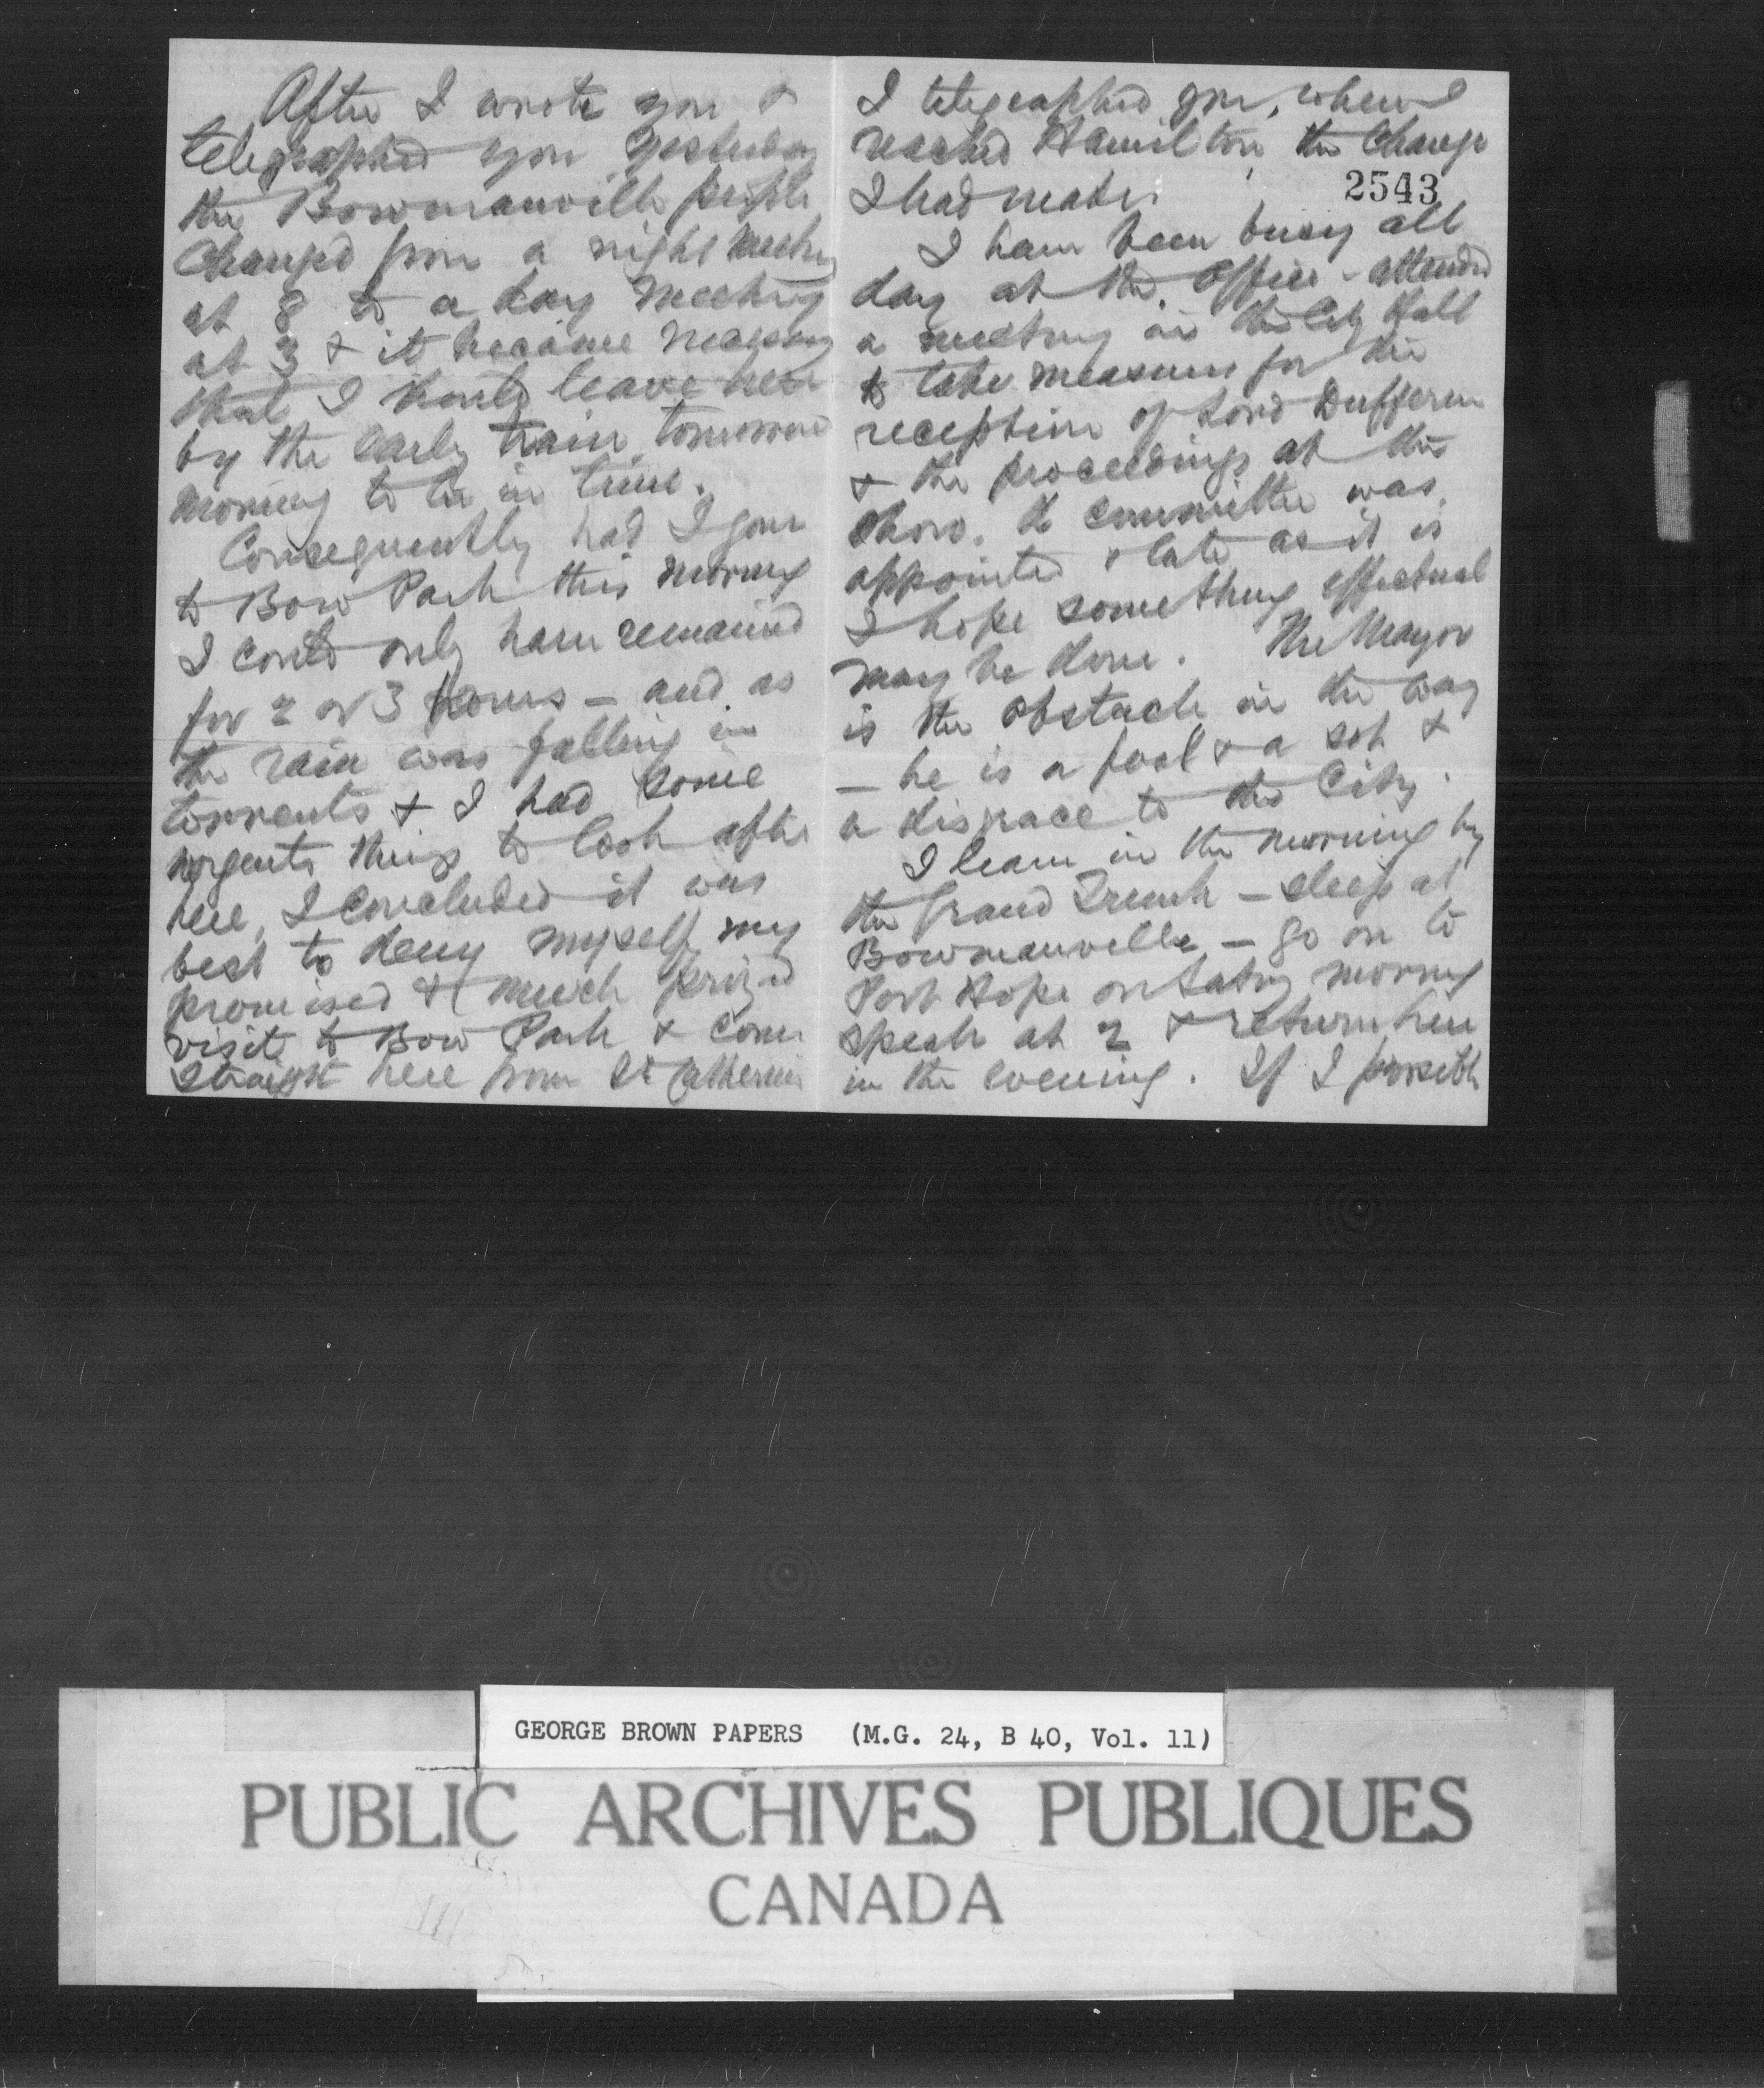 After I wrote you &
telegraphed you yesterday
the Bowmanville people
changed from a night meeting
at 8 to a day meeting
at 3 & it became necessary
that I should leave here
by the early train tomorrow
morning to be in time.
Consequently had I gone
to Bow Park this morning
I could only have remained
for 2 or 3 hours – and as
the rain was falling in
torrents & I had some
urgent things to look after
here, I concluded it was
best to deny myself my
promised & much prized
visit to Bow Park & come
straight here from St Catherines
I telegraphed you, when I
reached Hamilton the change
I had made.
2543
I have been busy all
day at the office – attended
a meeting in the City Hall
to take measures for the
reception of Lord Dufferin
& the proceedings at the
show. A committee was
appointed & late as it is
I hope something effectual
may be done. The Mayor
is the obstacle in the way
– he is a fool & a sot &
a disgrace to the City.
I leave in the morning by
the Grand Trunk – sleep at
Bowmanville – go on to
Port Hope on Saty morning
speak at 2 & return here
in the evening. If I possibly
GEORGE BROWN PAPERS (M.G. 24, B 40, Vol. 11)
PUBLIC ARCHIVES PUBLIQUES
CANADA